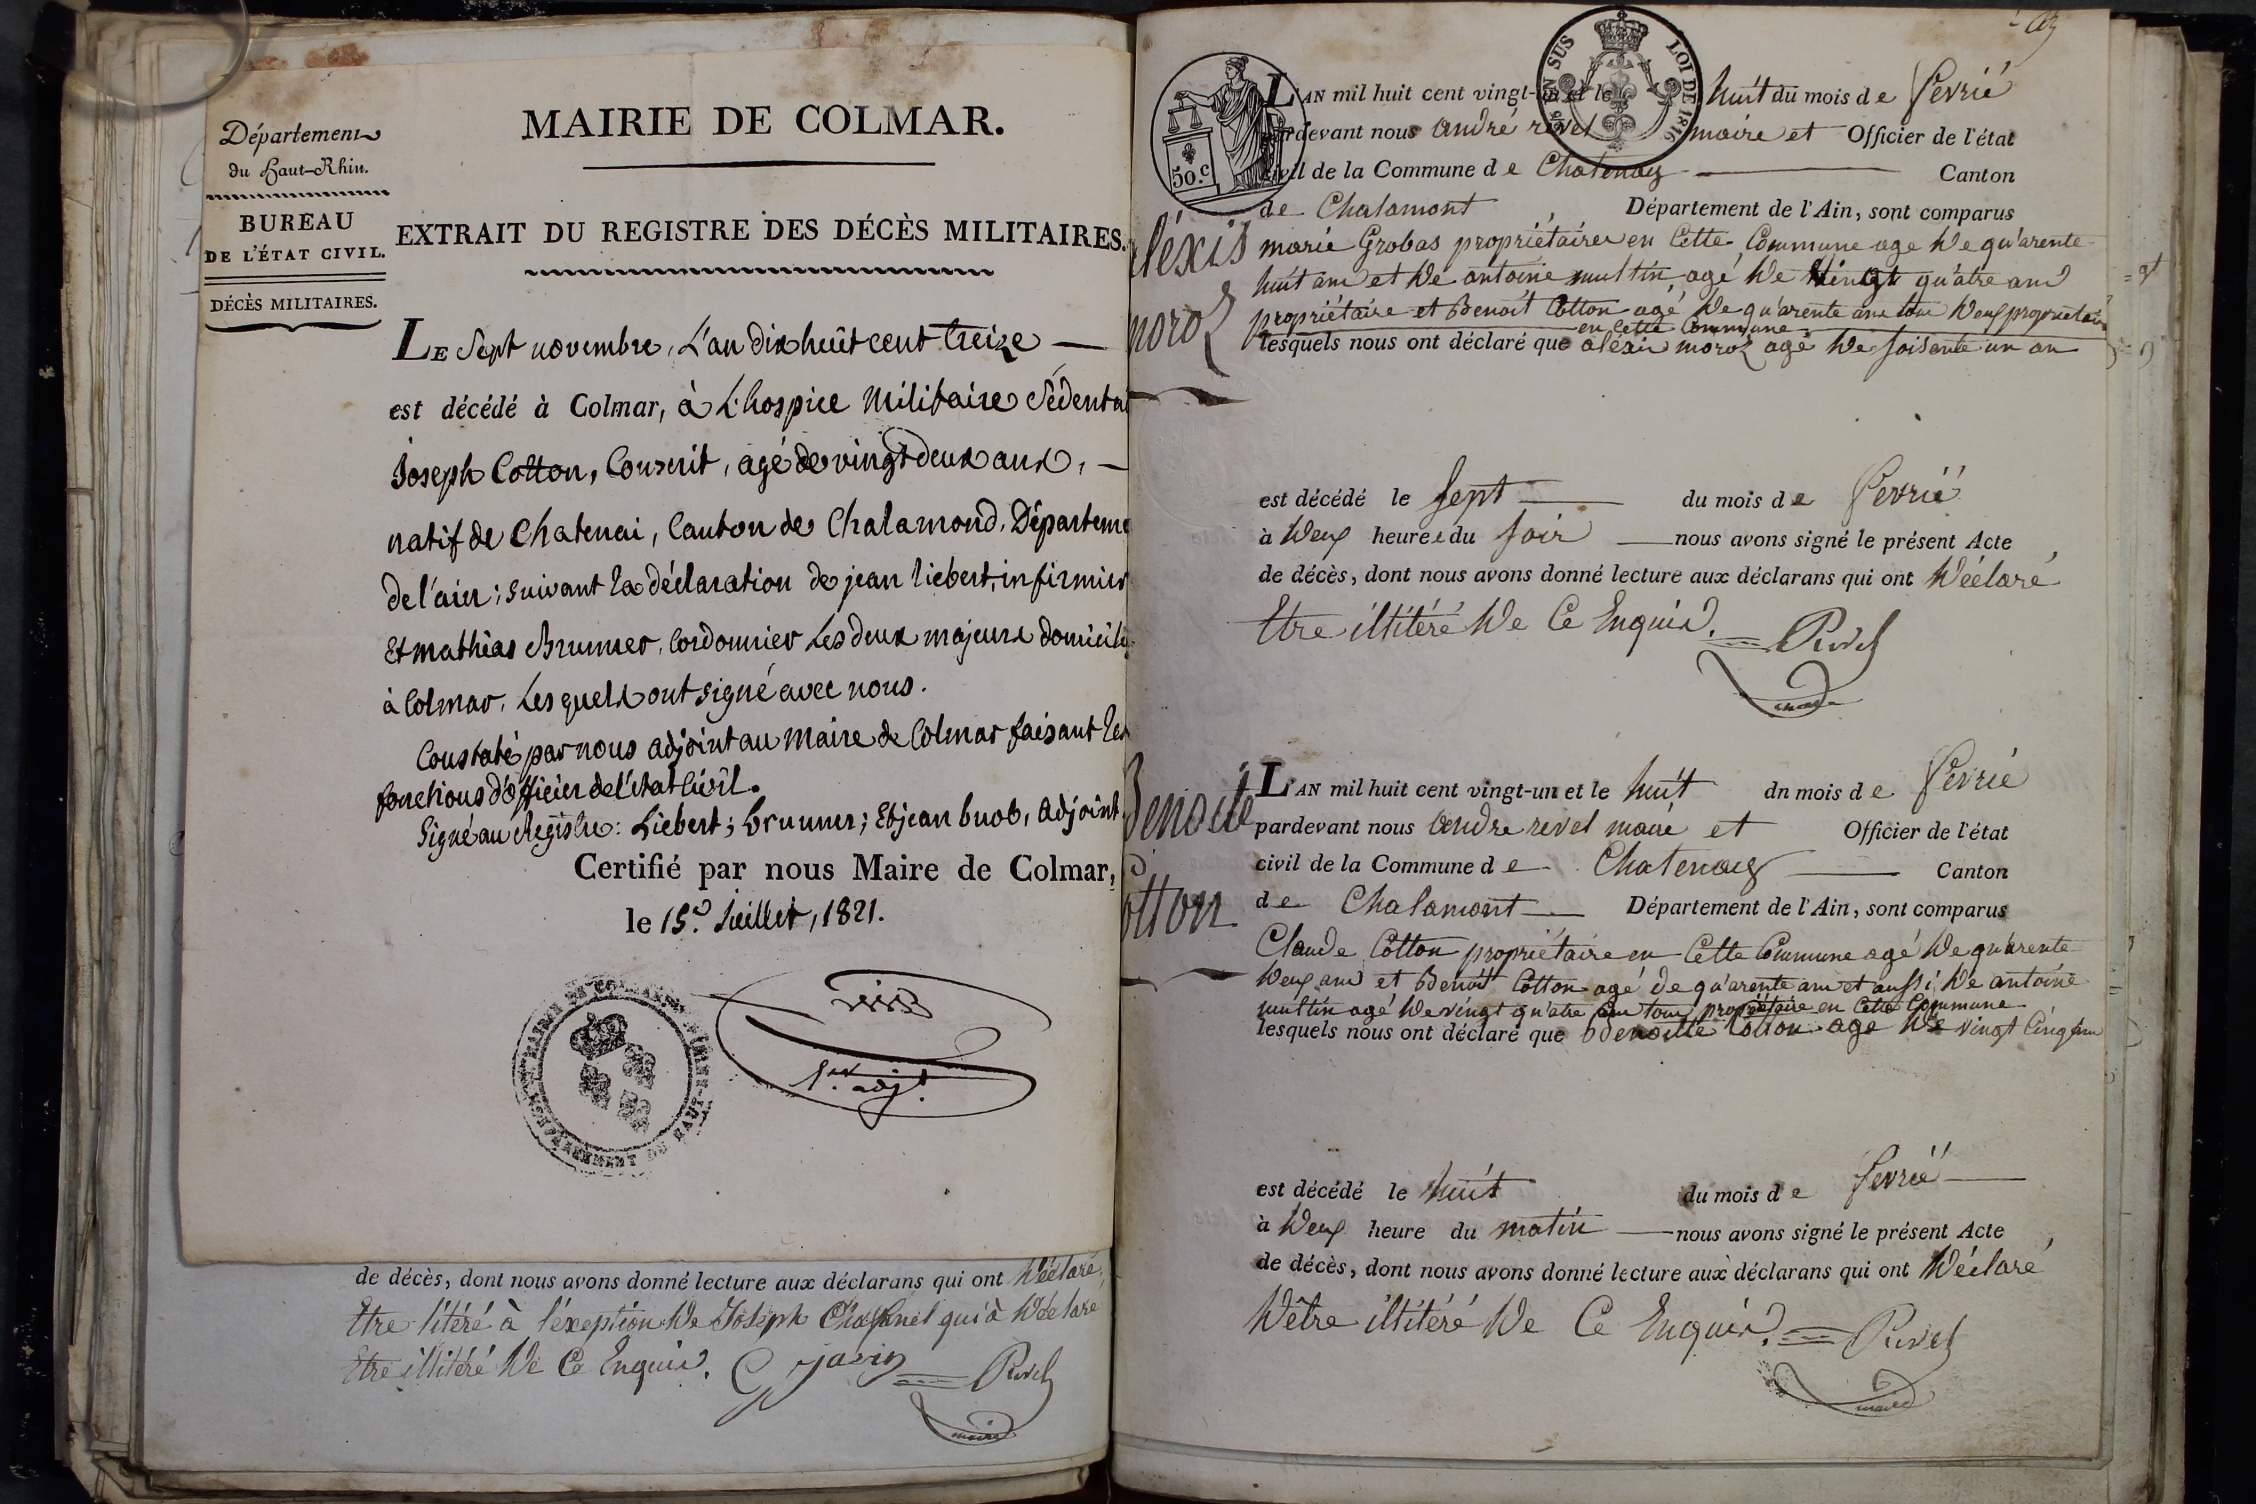 Département
du Haut-Rhin.
BUREAU
DE L'ÉTAT CIVIL.
DÉCÈS MILITAIRES.
MAIRIE DE COLMAR.
EXTRAIT DU REGISTRE DES DÉCÈS MILITAIRES.
LE Sept novembre, L'an dix huit cent treize —
est décédé à Colmar, à L'hospice Militaire Sédentai
Joseph Cotton, Conscrit, agé de vingt deux ans, —
natif de Chatenai, Canton de Chalamond, Départeme
de l'ain; suivant la déclaration de jean liebert, infirmier
Et mathias Brunner, Cordonnier Les deux majeurs domicili
à Colmar, Lesquels ont signé avec nous.
Constaté par nous adjoint au Maire de Colmar faisant les
fonctions d'officier de l'état Civil.
Signé au Registre: Liebert; brunner; Et jean buob, adjoint
Certifié par nous Maire de Colmar,
le 15. Juillet, 1821.
MAIRIE DE COLMAR
DÉPARTEMENT DU HAUT-RHIN
1er adjt.
de décès, dont nous avons donné lecture aux déclarans qui ont déclaré
Etre litéré à l'éxeption de Joseph Chassinel qui à déclaré
Etre illitéré de Ce Enquis. javin Revel
maire
50.c
EN SUS LOI DE 1816
L'AN mil huit cent vingt-un et le huit du mois de fevrié
pardevant nous andré revel maire et Officier de l'état
civil de la Commune de Chatenay Canton
de Chalamont Département de l'Ain, sont comparus
aléxis
moroz
marie Grobas propriétaire en Cette Commune age de qu'arente
huit ans et de antoine multin, agé de vingt qu'atre ans
propriétaire et Benoit Cotton agé de qu'arente ans tous deux propriétaire
en Cette Commune
lesquels nous ont déclaré que aléxis moroz agé de soisente un an
est décédé le sept du mois de fevrié
à deux heures du soir nous avons signé le présent Acte
de décès, dont nous avons donné lecture aux déclarans qui ont déclaré
Etre illitéré de Ce Enquis. Revel
maire
L'AN mil huit cent vingt-un et le huit dn mois de fevrié
pardevant nous andre revel maire et Officier de l'état
civil de la Commune de Chatenay Canton
de Chalamont Département de l'Ain, sont comparus
Benoite
Cotton
Claude Cotton propriétaire en Cette Commune agé de qu'arente
deux ans et Benoit Cotton agé de qu'arente ans et aussi de antoine
multin agé de vingt qu'atre ans tous propriétaire en Cette Commune
lesquels nous ont déclaré que Benoitte Cotton age de vingt Cinq ans
est décédé le huit du mois de fevrié
à deux heure du matin nous avons signé le présent Acte
de décès, dont nous avons donné lecture aux déclarans qui ont déclaré
d'être illitéré de Ce Enquis. Revel
maire